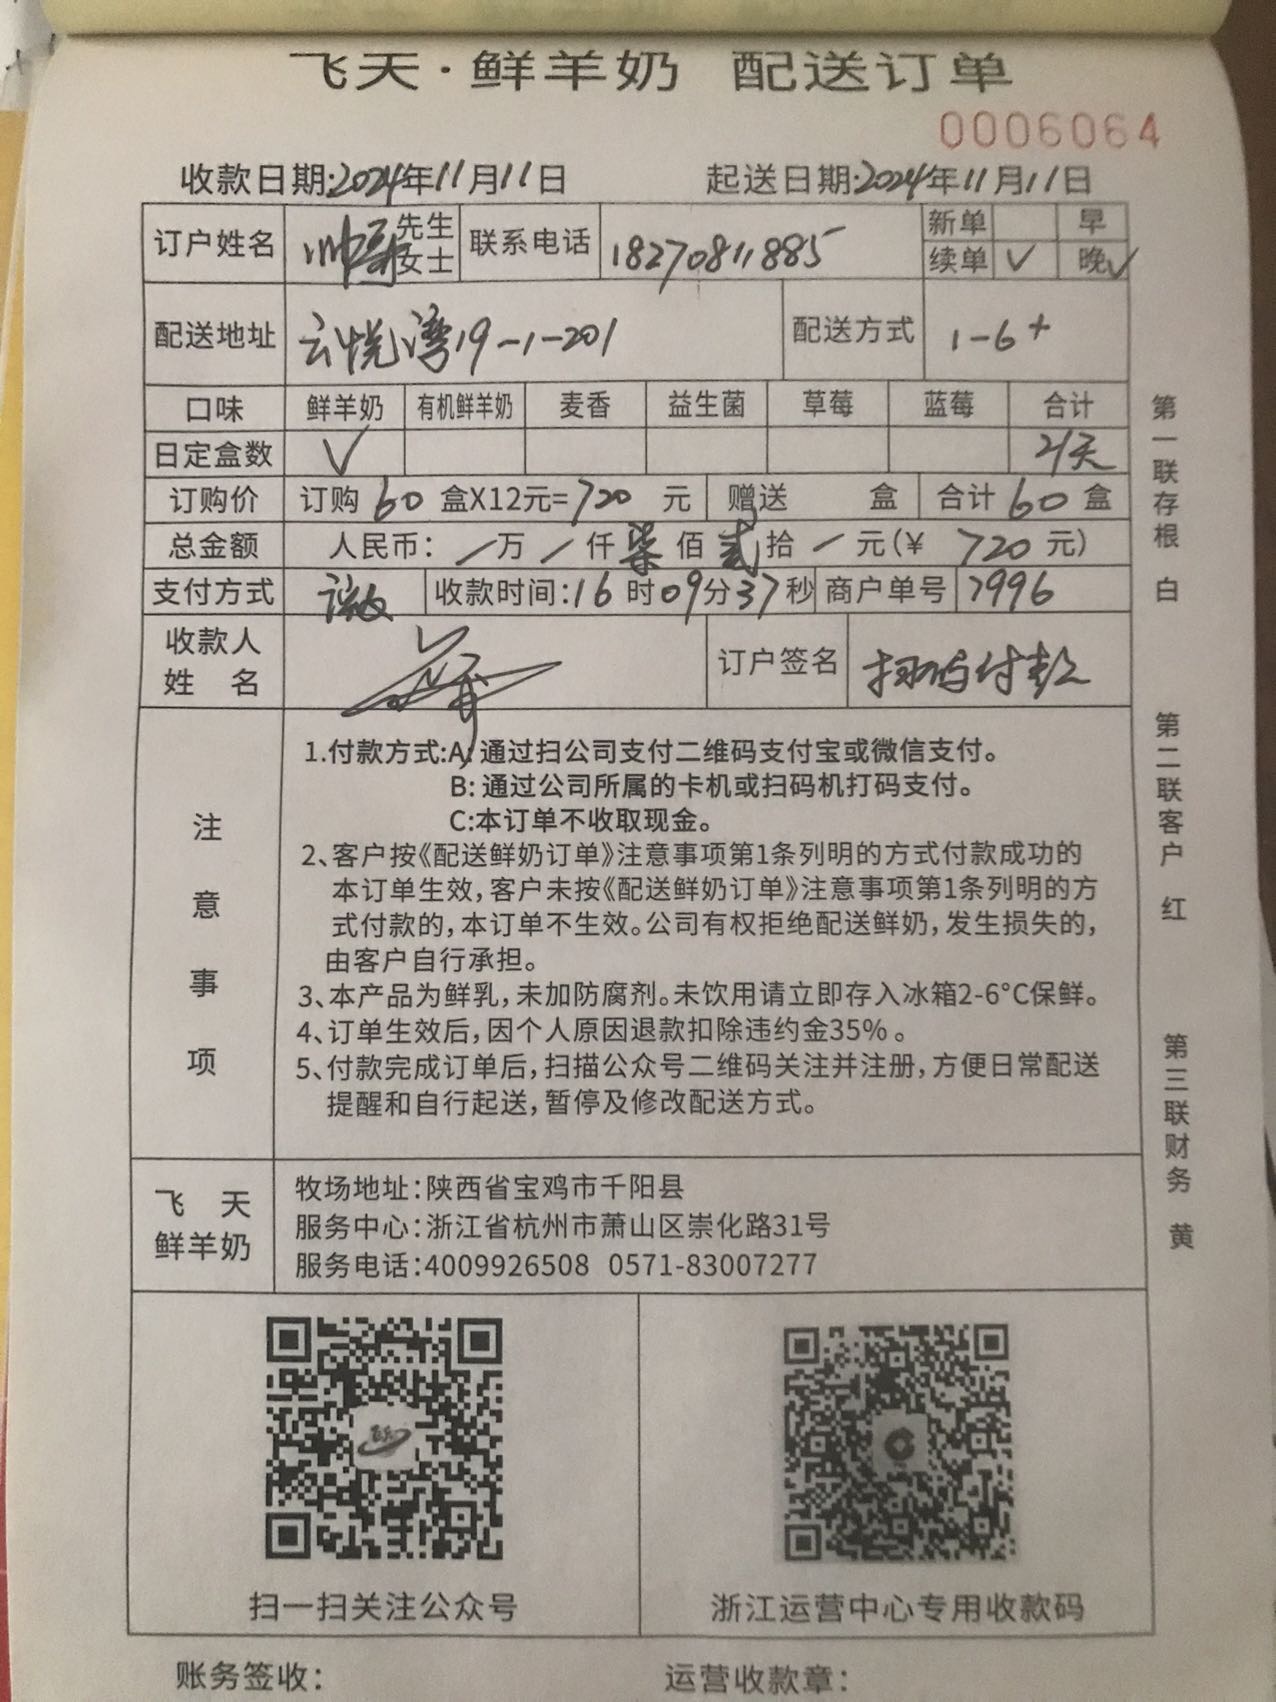 飞天·鲜羊奶 配送订单
0006064
收款日期:2024年11月11日 起送日期:2024年11月11日
订户姓名 帅哥 先生 女士 联系电话 18270811885 新单 早
续单 √ 晚 √
配送地址 云悦湾19-1-201 配送方式 1-6+
口味 鲜羊奶 有机鲜羊奶 麦香 益生菌 草莓 蓝莓 合计
日定盒数 √ 天
订购价 订购 60 盒X12元=720 元 赠送 盒 合计 60 盒
总金额 人民币: / 万 / 仟 柒 佰 贰 拾 / 元(¥ 720 元)
支付方式 微 收款时间:16时09分37秒 商户单号 7996
收款人
姓 名 订户签名 扫码付款
注意事项
1.付款方式:A: 通过扫公司支付二维码支付宝或微信支付。
B: 通过公司所属的卡机或扫码机打码支付。
C:本订单不收取现金。
2、客户按《配送鲜奶订单》注意事项第1条列明的方式付款成功的
本订单生效,客户未按《配送鲜奶订单》注意事项第1条列明的方
式付款的,本订单不生效。公司有权拒绝配送鲜奶,发生损失的,
由客户自行承担。
3、本产品为鲜乳,未加防腐剂。未饮用请立即存入冰箱2-6°C保鲜。
4、订单生效后,因个人原因退款扣除违约金35%。
5、付款完成订单后,扫描公众号二维码关注并注册,方便日常配送
提醒和自行起送,暂停及修改配送方式。
飞 天
鲜羊奶
牧场地址:陕西省宝鸡市千阳县
服务中心:浙江省杭州市萧山区崇化路31号
服务电话:4009926508 0571-83007277
扫一扫关注公众号 浙江运营中心专用收款码
账务签收: 运营收款章:
第一联存根 白
第二联客户 红
第三联财务 黄